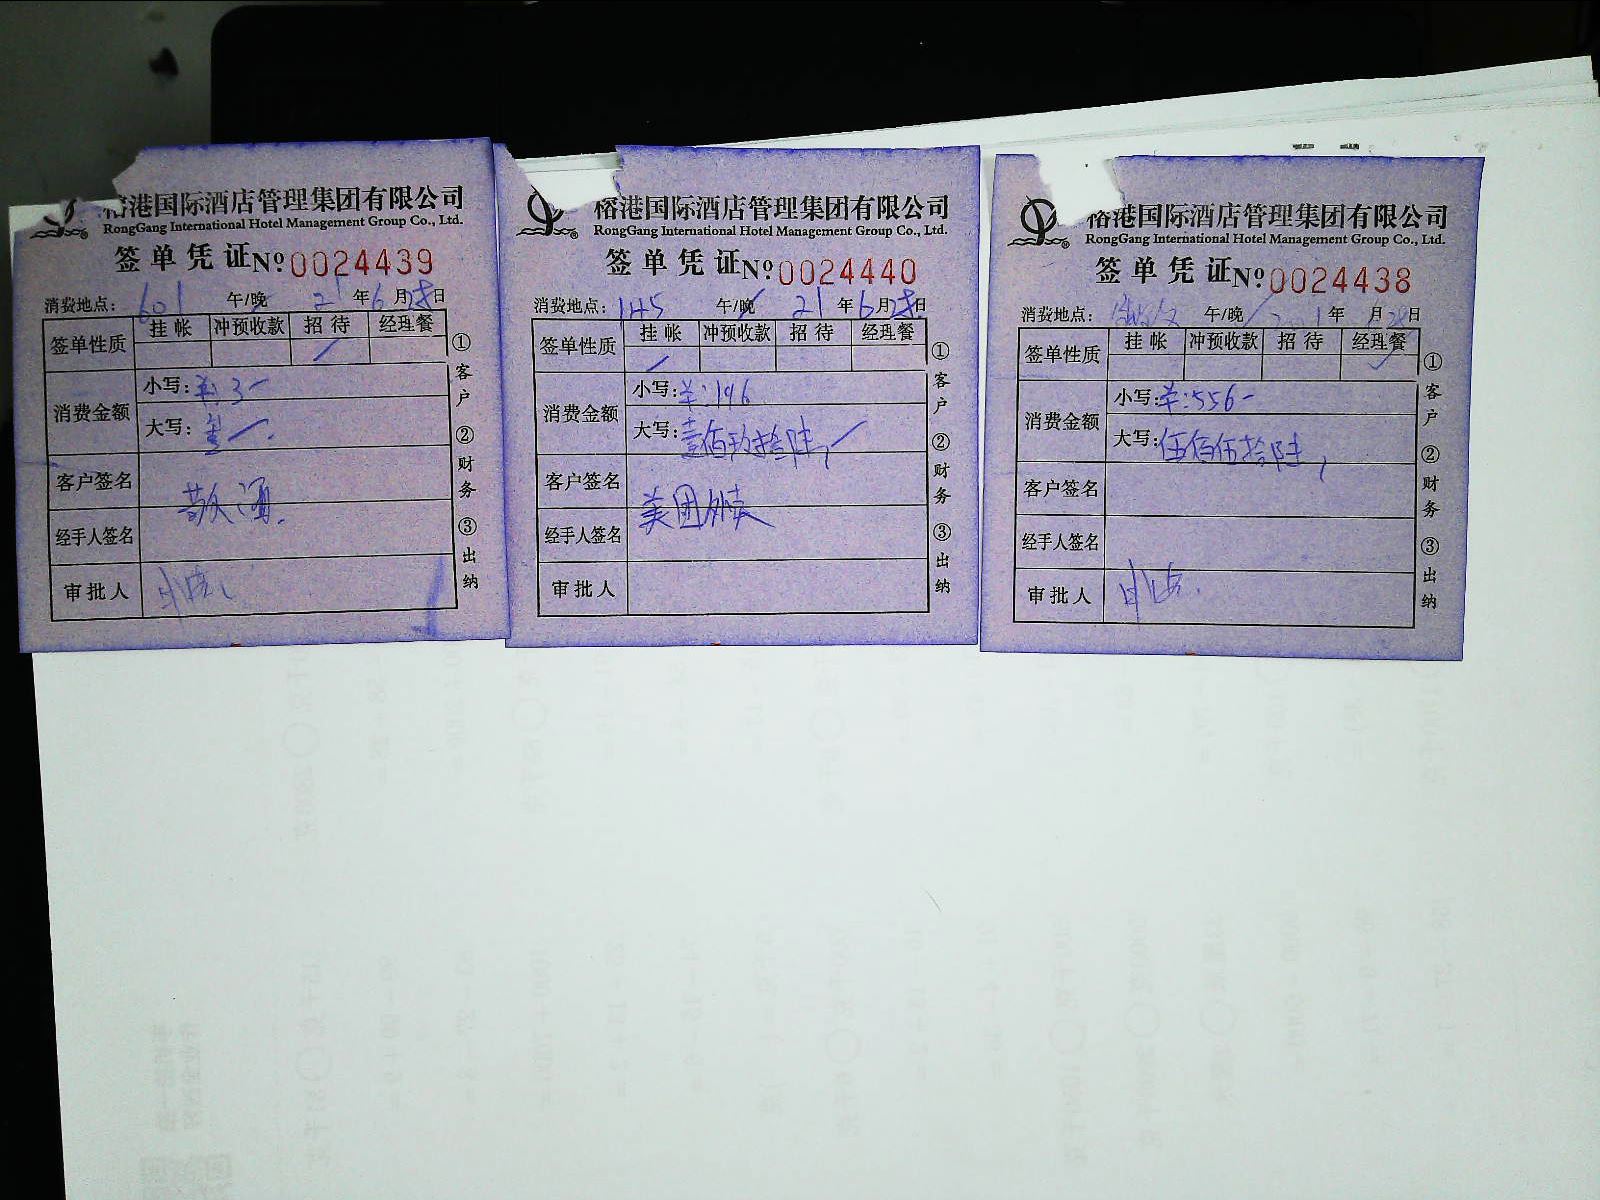 港国际酒店管理集团有限公司
RongGang International Hotel Management Group Co., Ltd.
签单凭证 Nº 0024439
消费地点: 601 午/晚 21年6月28日
签单性质 挂帐 冲预收款 招待 经理餐
消费金额
小写: 羊3一
大写:
客户签名
经手人签名
审批人
①客户 ②财务 ③出纳
榕港国际酒店管理集团有限公司
RongGang International Hotel Management Group Co., Ltd.
签单凭证 Nº 0024440
消费地点: 145 午/晚 21年6月28日
签单性质 挂帐 冲预收款 招待 经理餐
消费金额
小写: 羊:196
大写: 壹佰玖拾陆
客户签名
美团外卖
经手人签名
审批人
①客户 ②财务 ③出纳
榕港国际酒店管理集团有限公司
RongGang International Hotel Management Group Co., Ltd.
签单凭证 Nº 0024438
消费地点: 午/晚 年 月28日
签单性质 挂帐 冲预收款 招待 经理餐
消费金额
小写: 羊:556-
大写: 伍佰伍拾陆
客户签名
经手人签名
审批人
①客户 ②财务 ③出纳